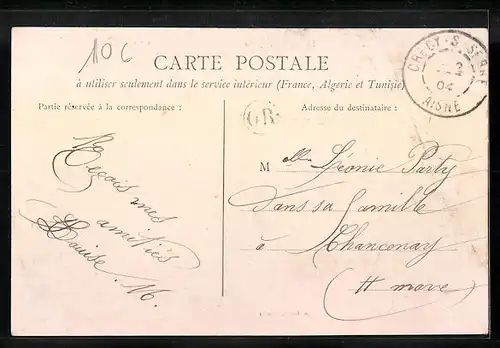 106
CARTE POSTALE
à utiliser seulement dans le service intérieur (France, Algerie et Tunisie)
Partie réservée à la correspondance :
Adresse du destinataire :
CRÉCY-S-SERRE
2
04
AISNE
GR
Reçois mes
amitiés
Louise. M.
Melle Léonie Party
Dans sa famille
à Chancenay
(Hte marne)